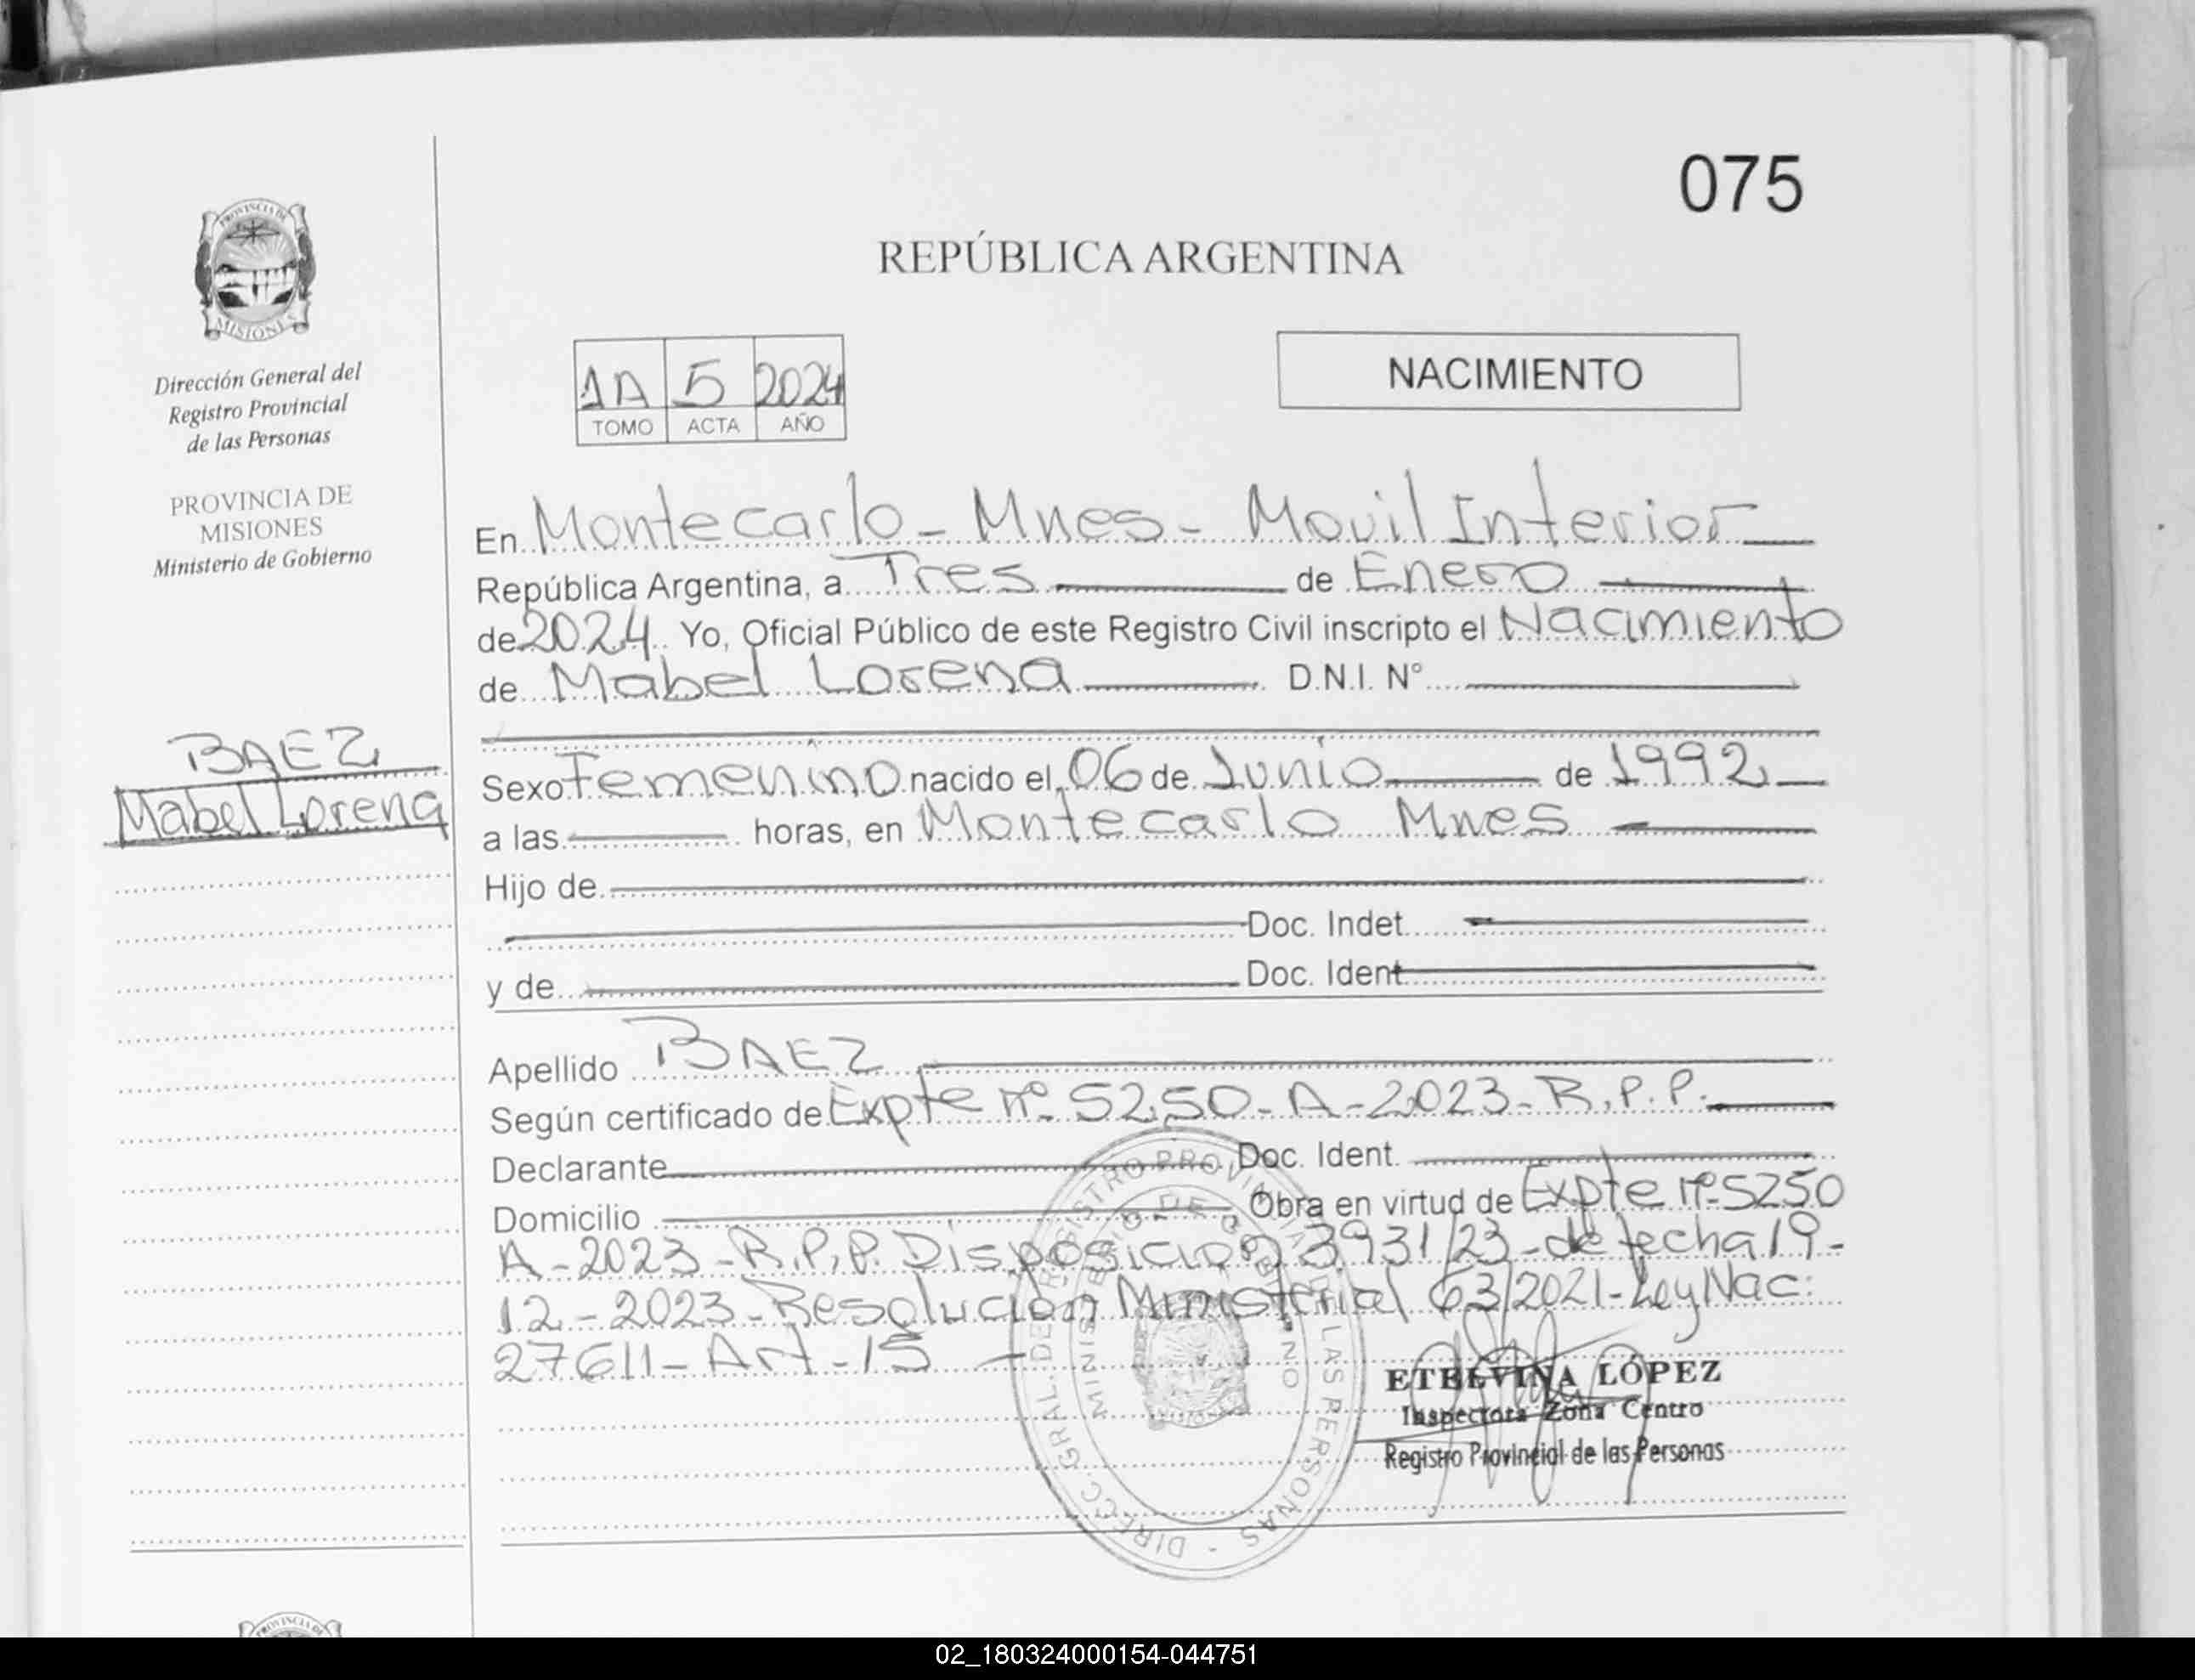 075
REPÚBLICA ARGENTINA
PROVINCIA DE
MISIONES
Dirección General del
Registro Provincial
de las Personas
PROVINCIA DE
MISIONES
Ministerio de Gobierno
BAEZ
Mabel Lorena
1A 5 2024
TOMO ACTA AÑO
NACIMIENTO
En Montecarlo - Mnes - Movil Interior
República Argentina, a Tres de Enero
de 2024. Yo, Oficial Público de este Registro Civil inscripto el Nacimiento
de Mabel Lorena D.N.I. N°
Sexo Femenino nacido el 06 de Junio de 1992
a las horas, en Montecarlo Mnes
Hijo de
Doc. Indet.
y de Doc. Ident
Apellido BAEZ
Según certificado de Expte nº 5250-A-2023-R.P.P.
Declarante Doc. Ident.
Domicilio Obra en virtud de Expte nº 5250
A-2023-R.P.P. Disposición 3931/23-de fecha 19-
12-2023-Resolución Ministerial 63/2021-Ley Nac:
27611-Art-15
DIRECC. GRAL. DE REGISTRO PROVINCIAL DE LAS PERSONAS -
MINISTERIO DE GOBIERNO
ETELVINA LÓPEZ
Inspectora Zona Centro
Registro Provincial de las Personas
02_180324000154-044751